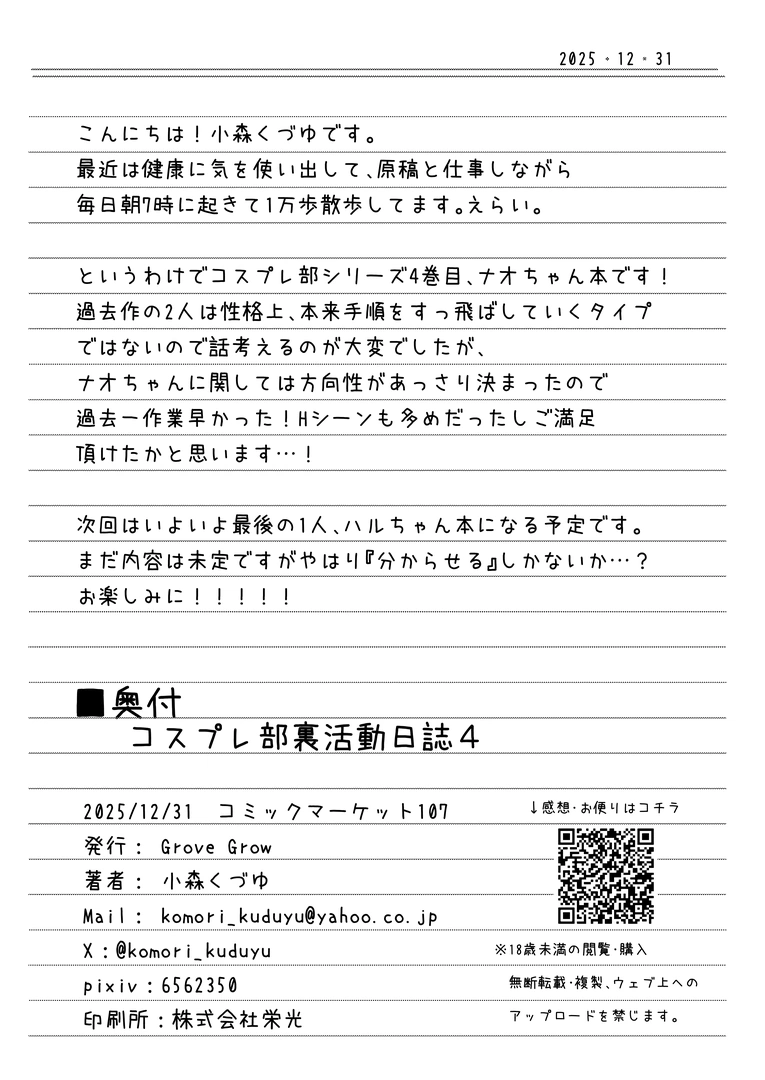 2025・12・31
こんにちは！小森くづゆです。
最近は健康に気を使い出して、原稿と仕事しながら
毎日朝7時に起きて1万歩散歩してます。えらい。
というわけでコスプレ部シリーズ4巻目、ナオちゃん本です！
過去作の2人は性格上、本来手順をすっ飛ばしていくタイプ
ではないので話考えるのが大変でしたが、
ナオちゃんに関しては方向性があっさり決まったので
過去一作業早かった！Hシーンも多めだったしご満足
頂けたかと思います…！
次回はいよいよ最後の1人、ハルちゃん本になる予定です。
まだ内容は未定ですがやはり『分からせる』しかないか…？
お楽しみに！！！！！
■奥付
コスプレ部裏活動日誌４
2025/12/31 コミックマーケット107
発行： Grove Grow
著者： 小森くづゆ
Mail： komori_kuduyu@yahoo.co.jp
X：@komori_kuduyu
pixiv：6562350
印刷所：株式会社栄光
↓感想・お便りはコチラ
※18歳未満の閲覧・購入
無断転載・複製、ウェブ上への
アップロードを禁じます。